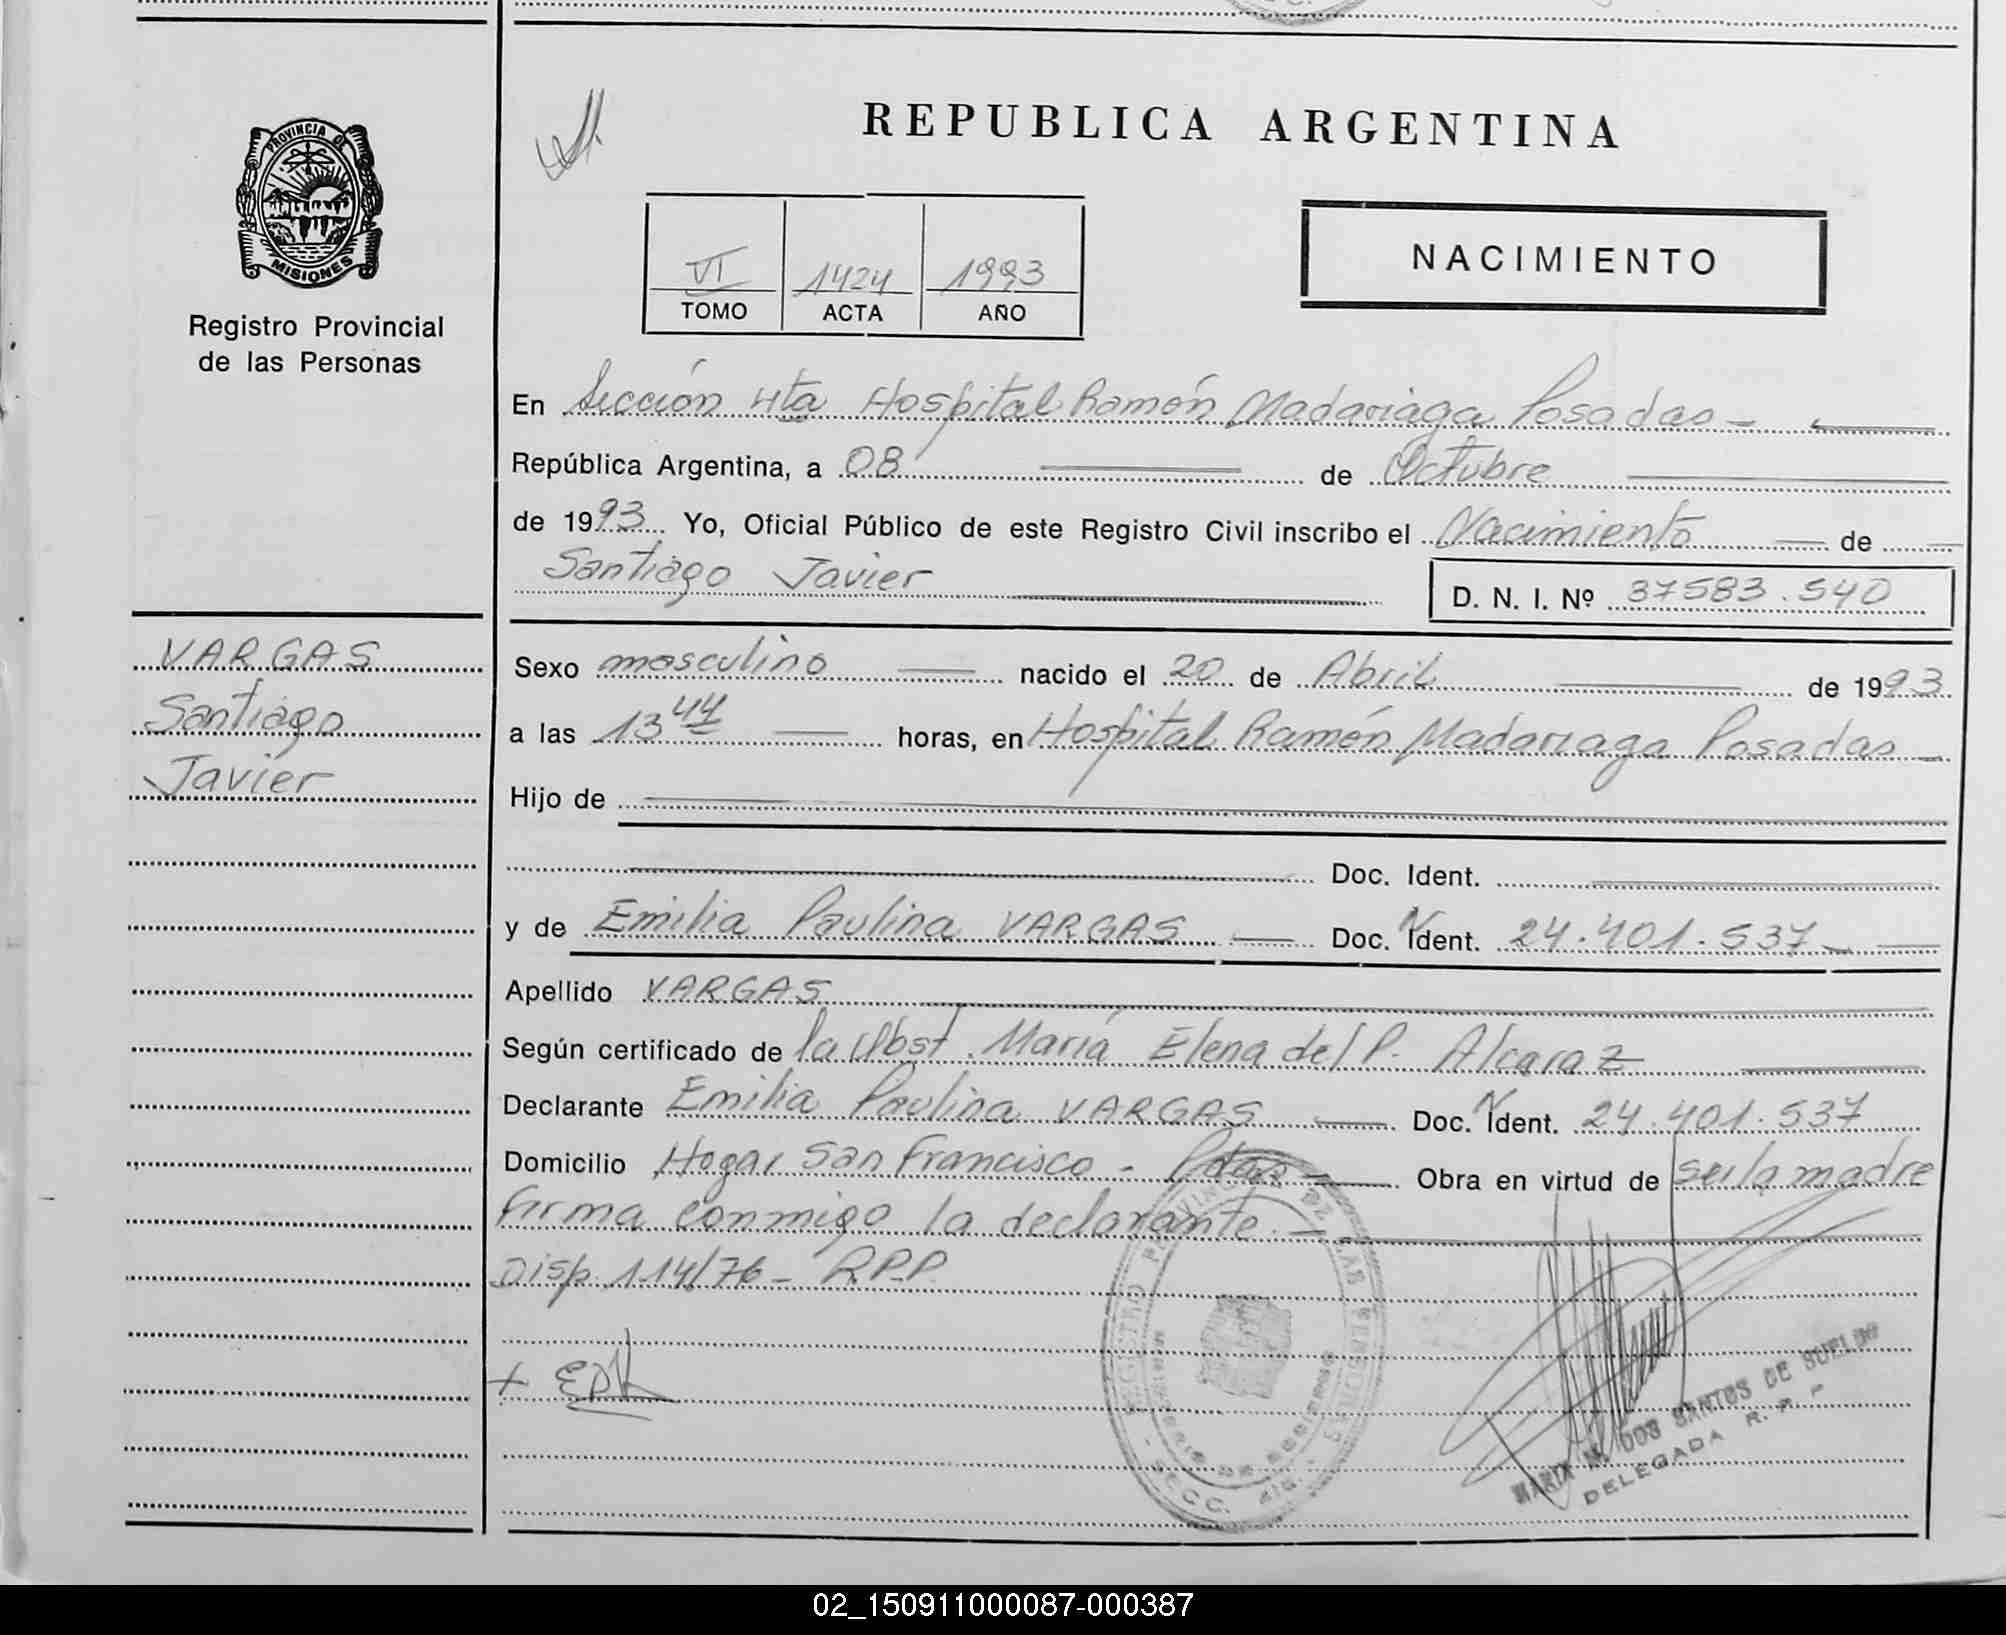 PROVINCIA DE
MISIONES
Registro Provincial
de las Personas
VARGAS
Santiago
Javier
REPUBLICA ARGENTINA
VI 1424 1993
TOMO ACTA AÑO
NACIMIENTO
En Sección 4ta Hospital Ramón Madariaga Posadas -
República Argentina, a 08 de Octubre
de 1993 Yo, Oficial Público de este Registro Civil inscribo el Nacimiento de
Santiago Javier D. N. I. Nº 37583.540
Sexo masculino nacido el 20 de Abril de 1993
a las 13 44 horas, en Hospital Ramón Madariaga Posadas -
Hijo de
Doc. Ident.
y de Emilia Paulina VARGAS Doc. N Ident. 24.401.537 -
Apellido VARGAS
Según certificado de la Obst. María Elena del P. Alcaraz
Declarante Emilia Paulina VARGAS Doc. N Ident. 24.401.537
Domicilio Hogar San Francisco - Pdas - Obra en virtud de ser la madre
firma conmigo la declarante. -
Disp. 114/76 - R.P.P.
+ EPV
REGISTRO PROVINCIAL DE LAS PERSONAS
MARIA N. DOS SANTOS DE SUELDO
DELEGADA R. P. P.
02_150911000087-000387